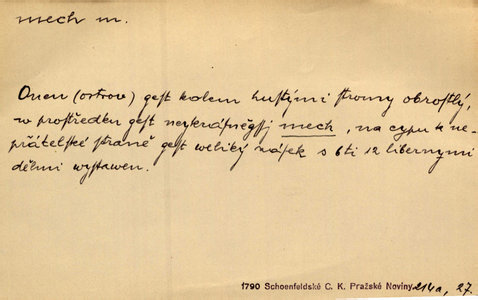 mech m.
Onen (ostrov) gest kolem hustými stromy obrostlý,
w prostředku gest neyknápněgssj mech, na cypu k ne-
přátelské straně gest weliký násek s 6ti 12 libernymi
dělmi wystawen.
1790 Schoenfeldské C. K. Pražské Noviny 214a, 27.